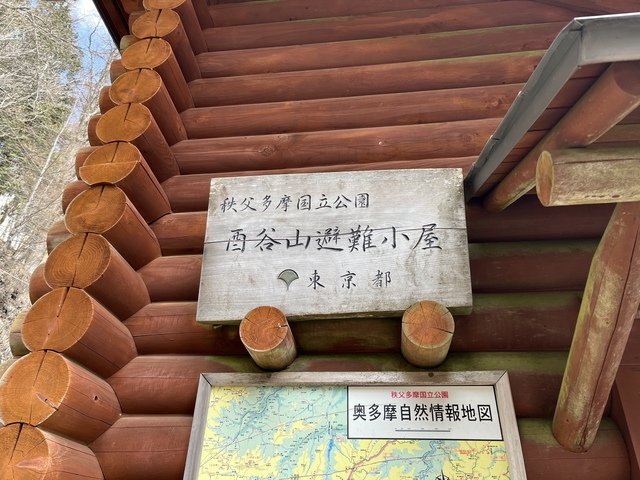 秩父多摩国立公園
酉谷山避難小屋
東京都
秩父多摩国立公園
奥多摩自然情報地図